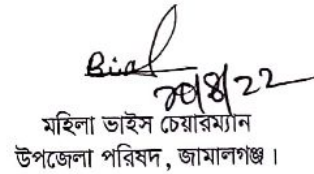 ২০/৪/২২
মহিলা ভাইস চেয়ারম্যান
উপজেলা পরিষদ, জামালগঞ্জ।